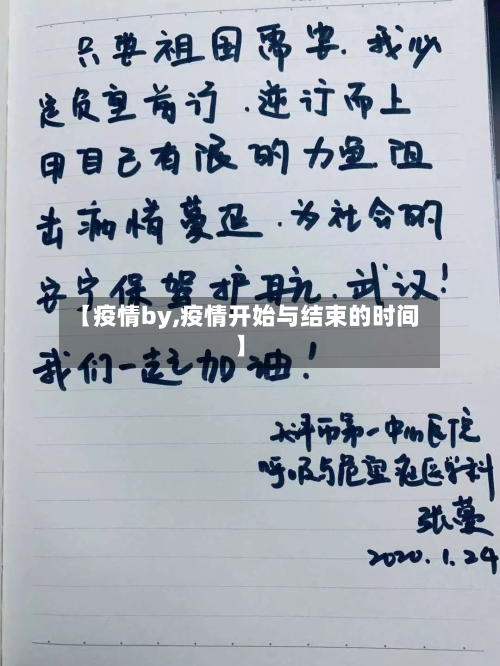 只要祖国需要，我必
定负重前行，逆行而上
用自己有限的力量阻
击病情蔓延，为社会的
安宁保驾护航，武汉！
【疫情by,疫情开始与结束的时间
】
我们一起加油！
天津市第一中心医院
呼吸与危重症医学科
张蔓
2020.1.24